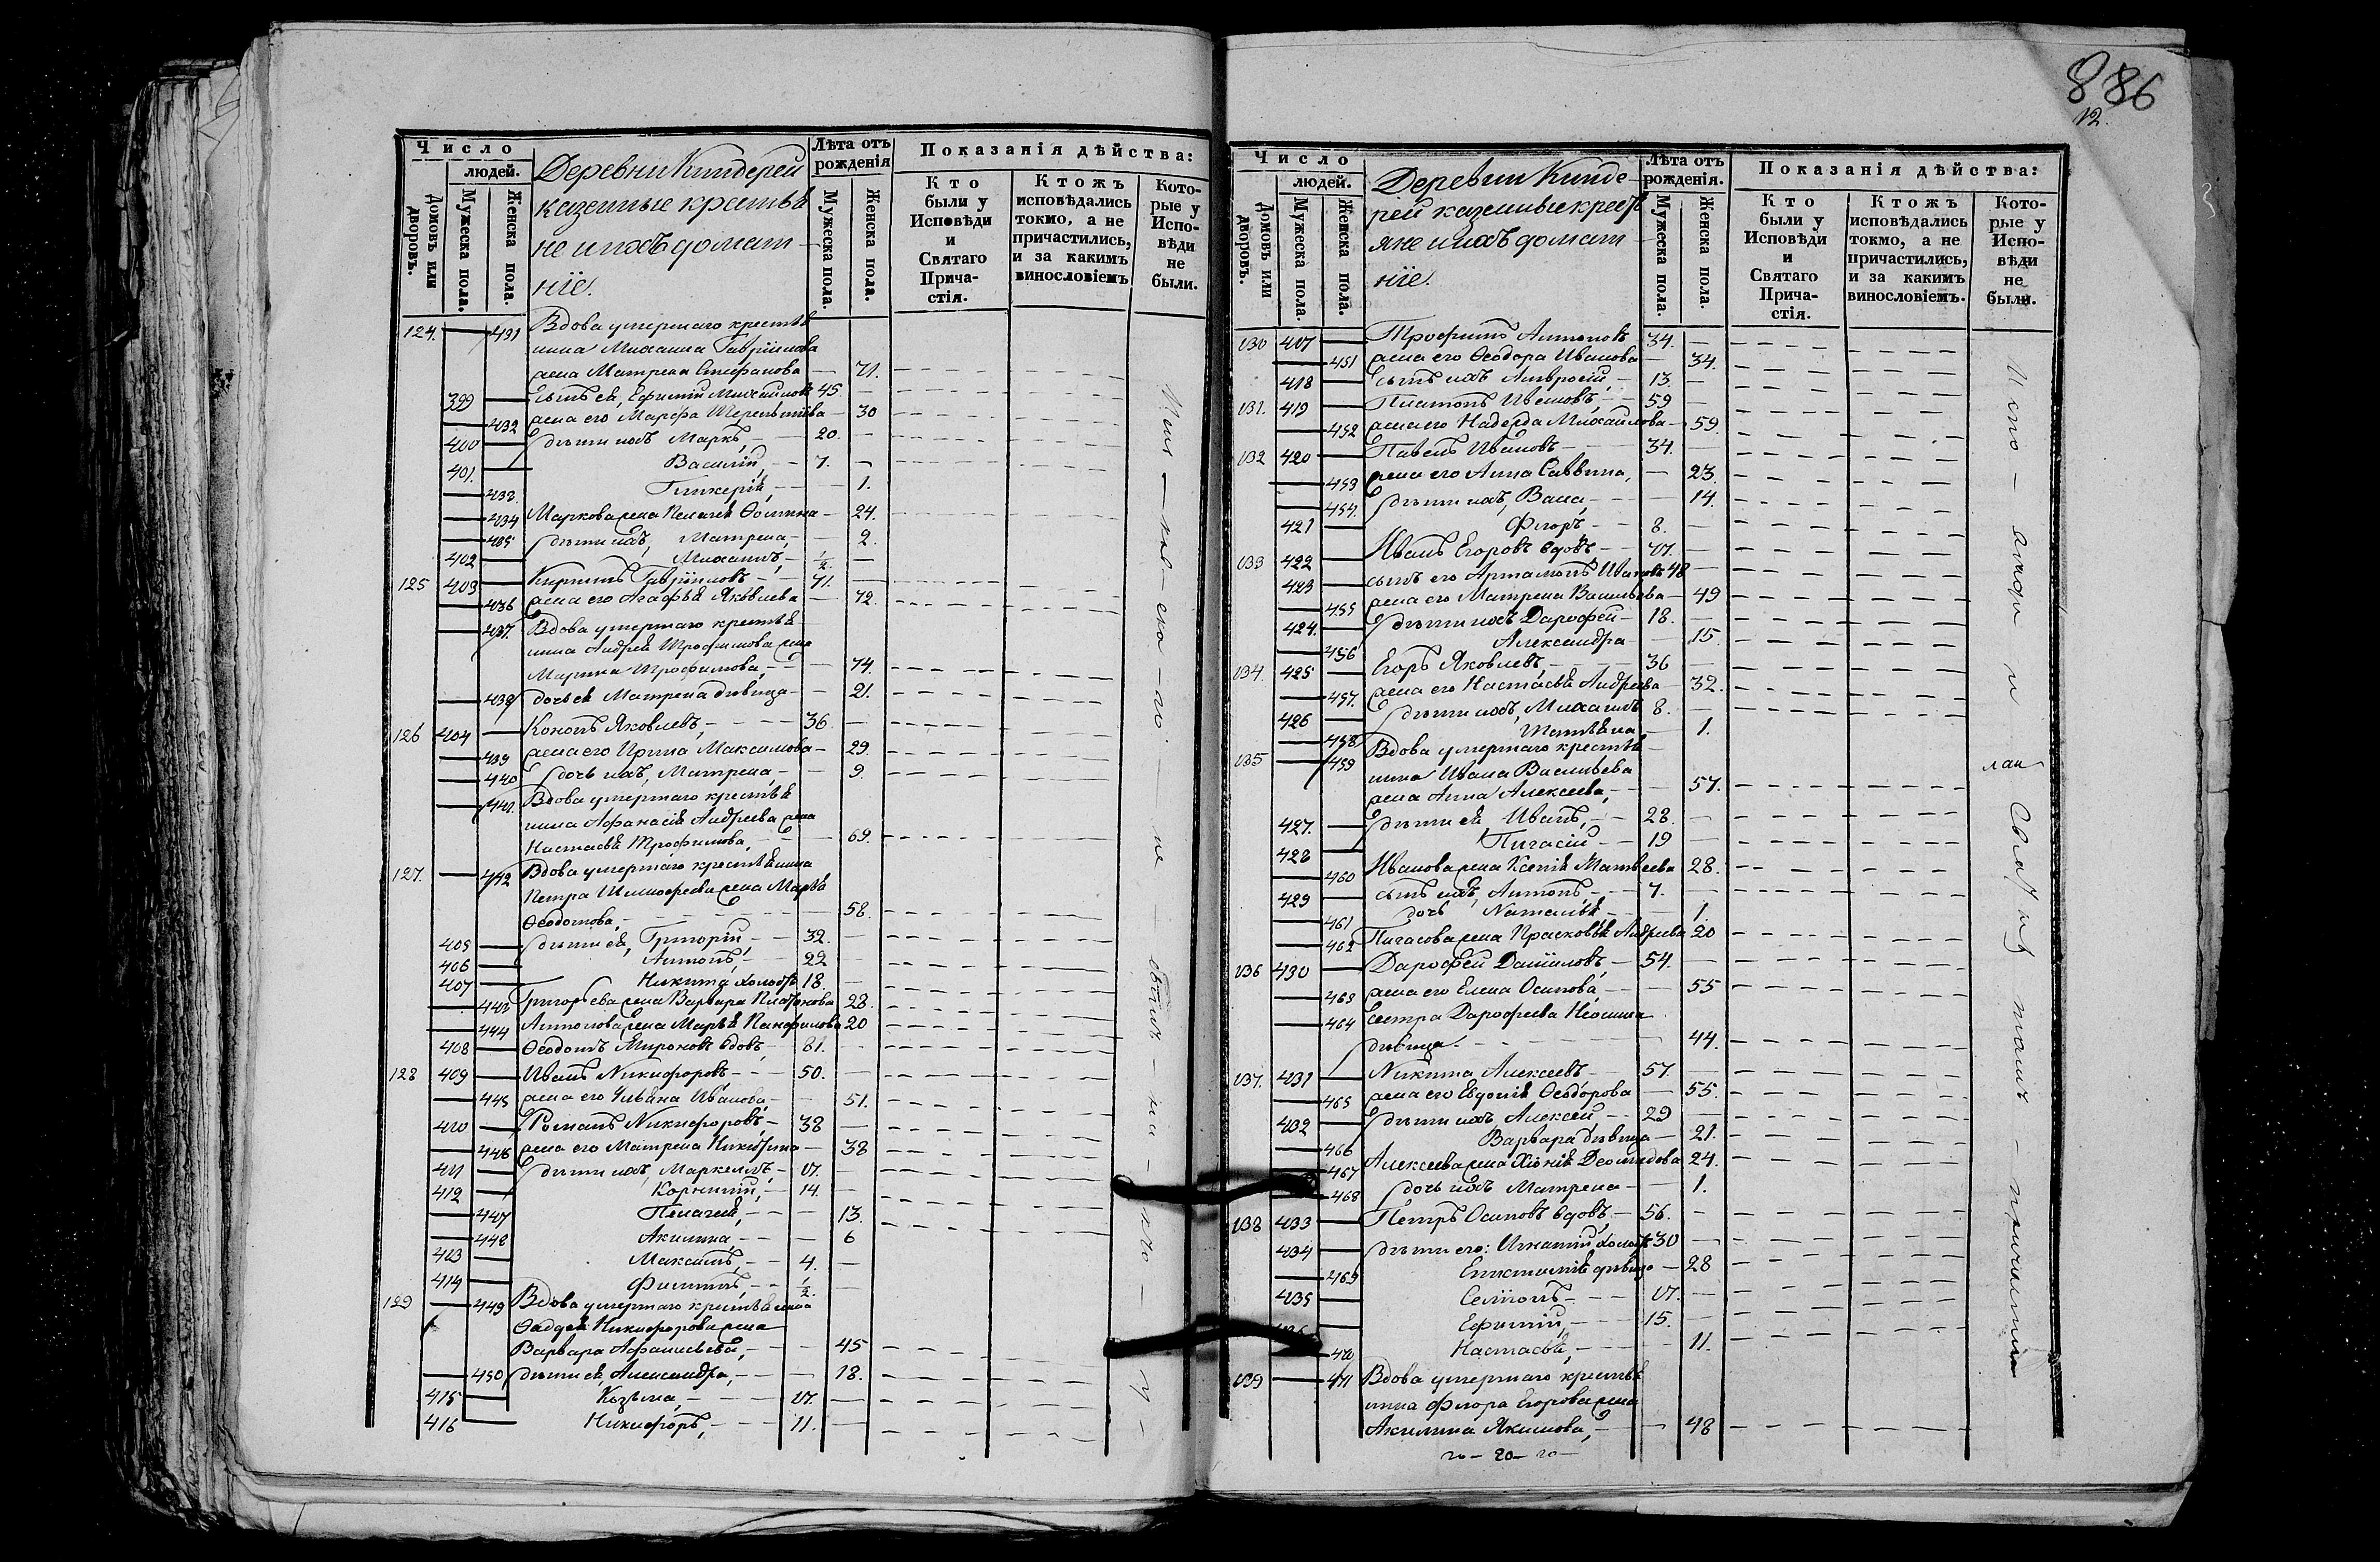 886
12.
Число
людей.
Домовъ или дворовъ.
Мужеска пола.
Женска пола.
Деревни Киндерей
казенные крестья
не и ихъ домаш-
нiе.
Лѣта отъ рожденiя
Мужеска пола.
Женска пола.
Показанiя дѣйства:
Кто были у Исповѣди и Святаго Прича-стiя.
Ктожъ исповѣдались токмо, а не причастились, и за какимъ винословiемъ
Кото-рые у Испо-вѣди не были.
124. — 431 Вдова умершаго крестья
нина Михаила Гаврiилова
жена Матрена Стефанова — 71.
399 — Сынъ ея, Ефимiй Михайловъ 45.
— 432 жена его Марфа Терентьева — 30
400 — дѣти ихъ Маркъ, — 20. —
401. — Василiй, — 7. —
— 433. Гликерiя, — 1.
— 434 Маркова жена Пелагея Фомина — 24.
— 435 дѣти ихъ, Матрена, — 2.
402 — Михаилъ, — 1/2. —
125 403 — Кирилъ Гаврiиловъ — 71. —
— 436 жена его Агафья Яковлева — 72.
— 437. Вдова умершаго крестья-
нина Андрея Трофимова жена
Марина Трофимова, — 74.
— 438 дочь ея Матрена дѣвица — 21.
126 404 — Кононъ Яковлевъ, — 36. —
— 439 жена его Ирина Максимова — 29.
— 440 дочь ихъ, Матрена, — 9.
— 441. Вдова умершаго крестья
нина Афанасiя Андреева жена
Настасья Трофимова, — 69.
127. — 442 Вдова умершаго крестьянина
Петра Тимофеева жена Марья
Феодотова, — 58.
405 — дѣти ея, Григорiй, — 32. —
406 — Антонъ, — 22 —
407 — Никита холостъ 18. —
— 443 Григорьева жена Варвара Платонова 28.
— 444 Антонова жена Марья Панфилова 20
408 — Феодотъ Мироновъ вдовъ, — 81. —
128 409 — Иванъ Никифоровъ — 50. —
— 445 жена его Ульяна Иванова, — 51.
410 — Романъ Никифоровъ, — 38 —
— 446 жена его Матрена Никитина — 38
411 — дѣти ихъ, Маркеллъ, — 17. —
412 — Корнилiй, — 14. —
— 447 Пелагея, — 13.
— 448 Акилина, — 6
413 — Максимъ, — 4. —
414 — Филиппъ, — 1/2. —
129 — 449 Вдова умершаго крестьянина
Фаддея Никифорова жена
Варвара Афанасьева, — 45
— 450 дѣти ея, Александра, — 18.
415 — Козьма, — 17. —
416 — Никифоръ, — 11. —
Число
людей.
Домовъ или дворовъ.
Мужеска пола.
Женска пола.
Деревни Кинде-
рей казенные крестья
яне и ихъ домаш
нiе.
Лѣта отъ рожденiя.
Мужеска пола.
Женска пола.
Показанiя дѣйства:
Кто были у Исповѣди и Святаго Прича-стiя.
Ктожъ исповѣдались токмо, а не причастились, и за какимъ винословiемъ.
Кото-рые у Испо-вѣди не были.
130 417 — Трофимъ Антоновъ 34. —
— 451 жена его Феодора Иванова — 34.
418 — Сынъ ихъ Амвросiй, — 13. —
131. 419 — Платонъ Ивановъ, — 59 —
— 452 жена его Надежда Михайлова — 59.
132 420 — Павелъ Ивановъ — 34. —
— 453 жена его Анна Саввина, — 23.
— 454. дѣти ихъ, Васса, — 14.
421 — Флоръ — 8. —
133 422 — Иванъ Егоровъ вдовъ — 77. —
423 — сынъ его Артамонъ Ивановъ 48 —
— 455 жена его Матрена Васильева — 49
424. — дѣти ихъ Дарофей — 18. —
— 456 Александра — 15.
134. 425 — Егоръ Яковлевъ, — 36 —
— 457. жена его Настасья Андреева — 32.
426 — дѣти ихъ, Михаилъ 8. —
— 458 Татьяна, — 1.
135 — 459 Вдова умершаго крестья-
нина Ивана Васильева
жена Анна Алексеева, — 57.
427. — дѣти ея Иванъ, — 28. —
428 — Пигасiй — 19 —
— 460 Иванова жена Ксенiя Матвеева 28.
429 — сынъ ихъ, Антонъ — 7. —
— 461 дочь Наталья — 1.
— 462 Пигасова жена Прасковья Андреева 20
136 430 — Дарофей Данiиловъ, — 54. —
— 463 жена его Елена Осипова, — 55
— 464 Сестра Дарофеева Неонила
дѣвица. — 44.
137. 431 — Никита Алексеевъ — 57. —
— 465 жена его Евдокiя Феодорова — 55.
432 — дѣти ихъ Алексей, — 29 —
— 466 Варвара дѣвица — 21.
— 467 Алексеева жена Хiонiя Деомидова 24.
— 468 дочь ихъ Матрена — 1.
138 433 — Петръ Осиповъ вдовъ — 56. —
434 — дѣти его: Игнатiй холостъ 30 —
— 469 Епистимiя дѣвица — 28
435 — Семiонъ — 17. —
— Ефимiй, — 15. —
— 470 Настасья, — 11.
139 — 471 Вдова умершаго крестья
нина Флора Егорова жена
Акилина Якимова, — 48